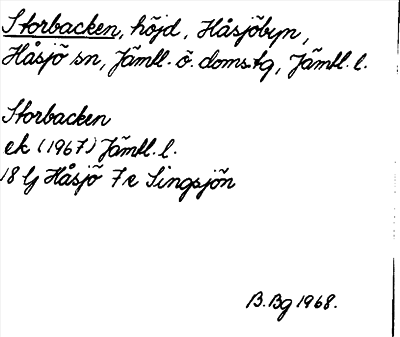 Storbacken, höjd, Håsjöbyn,
Håsjö sn, Jämtl. ö. doms.tg, Jämtl. l.
Storbacken
ek (1967) Jämtl. l.
18 G Håsjö 7e Singsjön
B. Bg 1968.